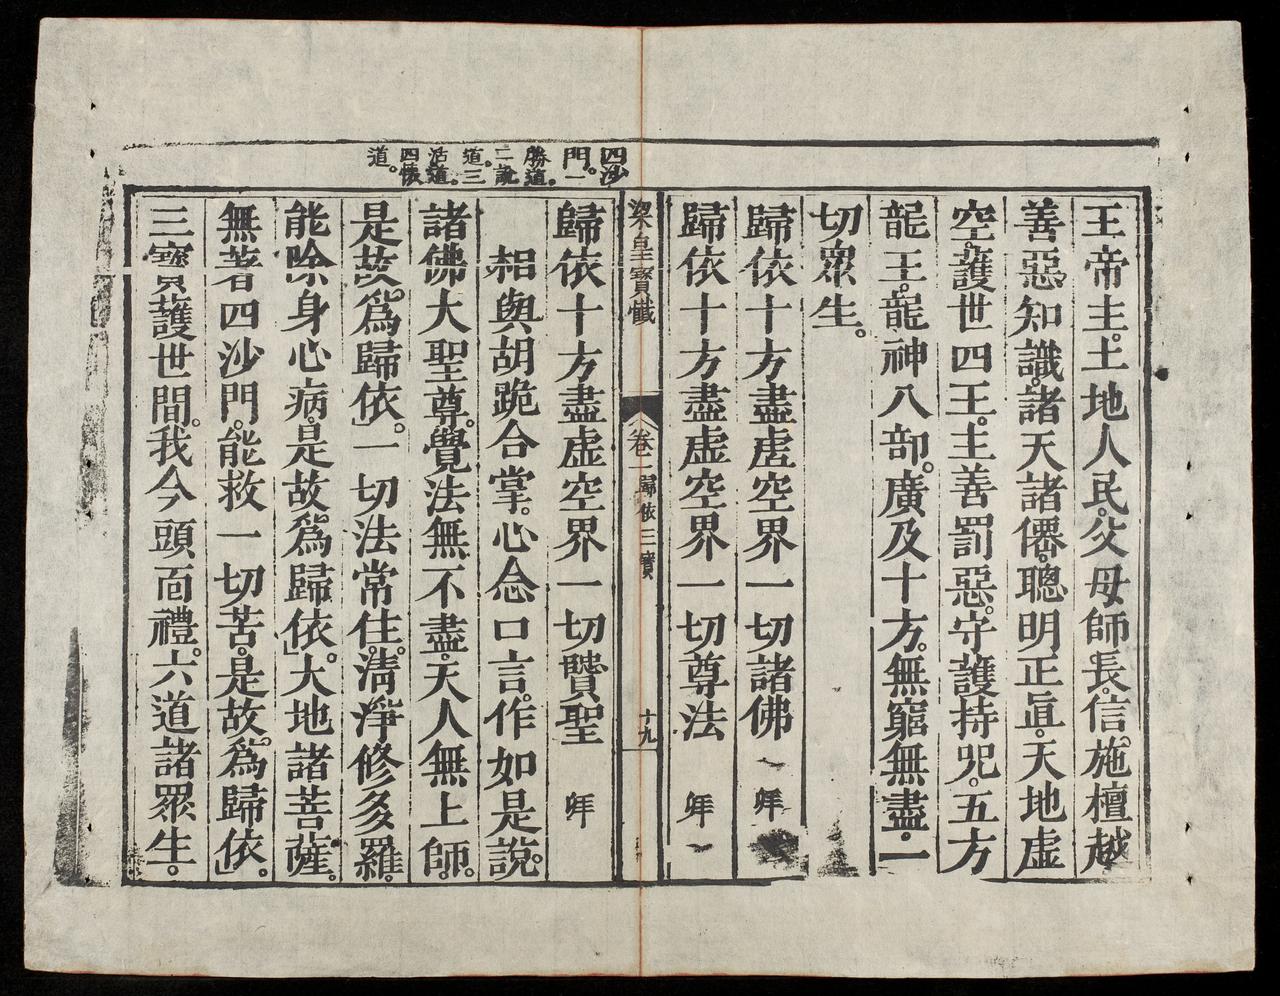 王帝主。土地人民。父母師長。信施檀越
善惡知識。諸天諸僊。聰明正直。天地虛
空。護世四王。主善罰惡。守護持咒。五方
龍王。龍神八部。廣及十方。無窮無盡。一
切眾生。
歸依十方盡虛空界一切諸佛 一拜
歸依十方盡虛空界一切尊法 拜
梁皇寶懺 卷一 歸依三寶 十九
歸依十方盡虛空界一切賢聖 拜
相與胡跪合掌。心念口言。作如是說。
諸佛大聖尊。覺法無不盡。天人無上師。
是故為歸依。一切法常住。清淨修多羅。
能除身心病。是故為歸依。大地諸菩薩。
無著四沙門。能救一切苦。是故為歸依。
三寶護世間。我今頭面禮。六道諸眾生。
四沙
門。一
勝道。
二說
道。三
活道。
四懷
道。